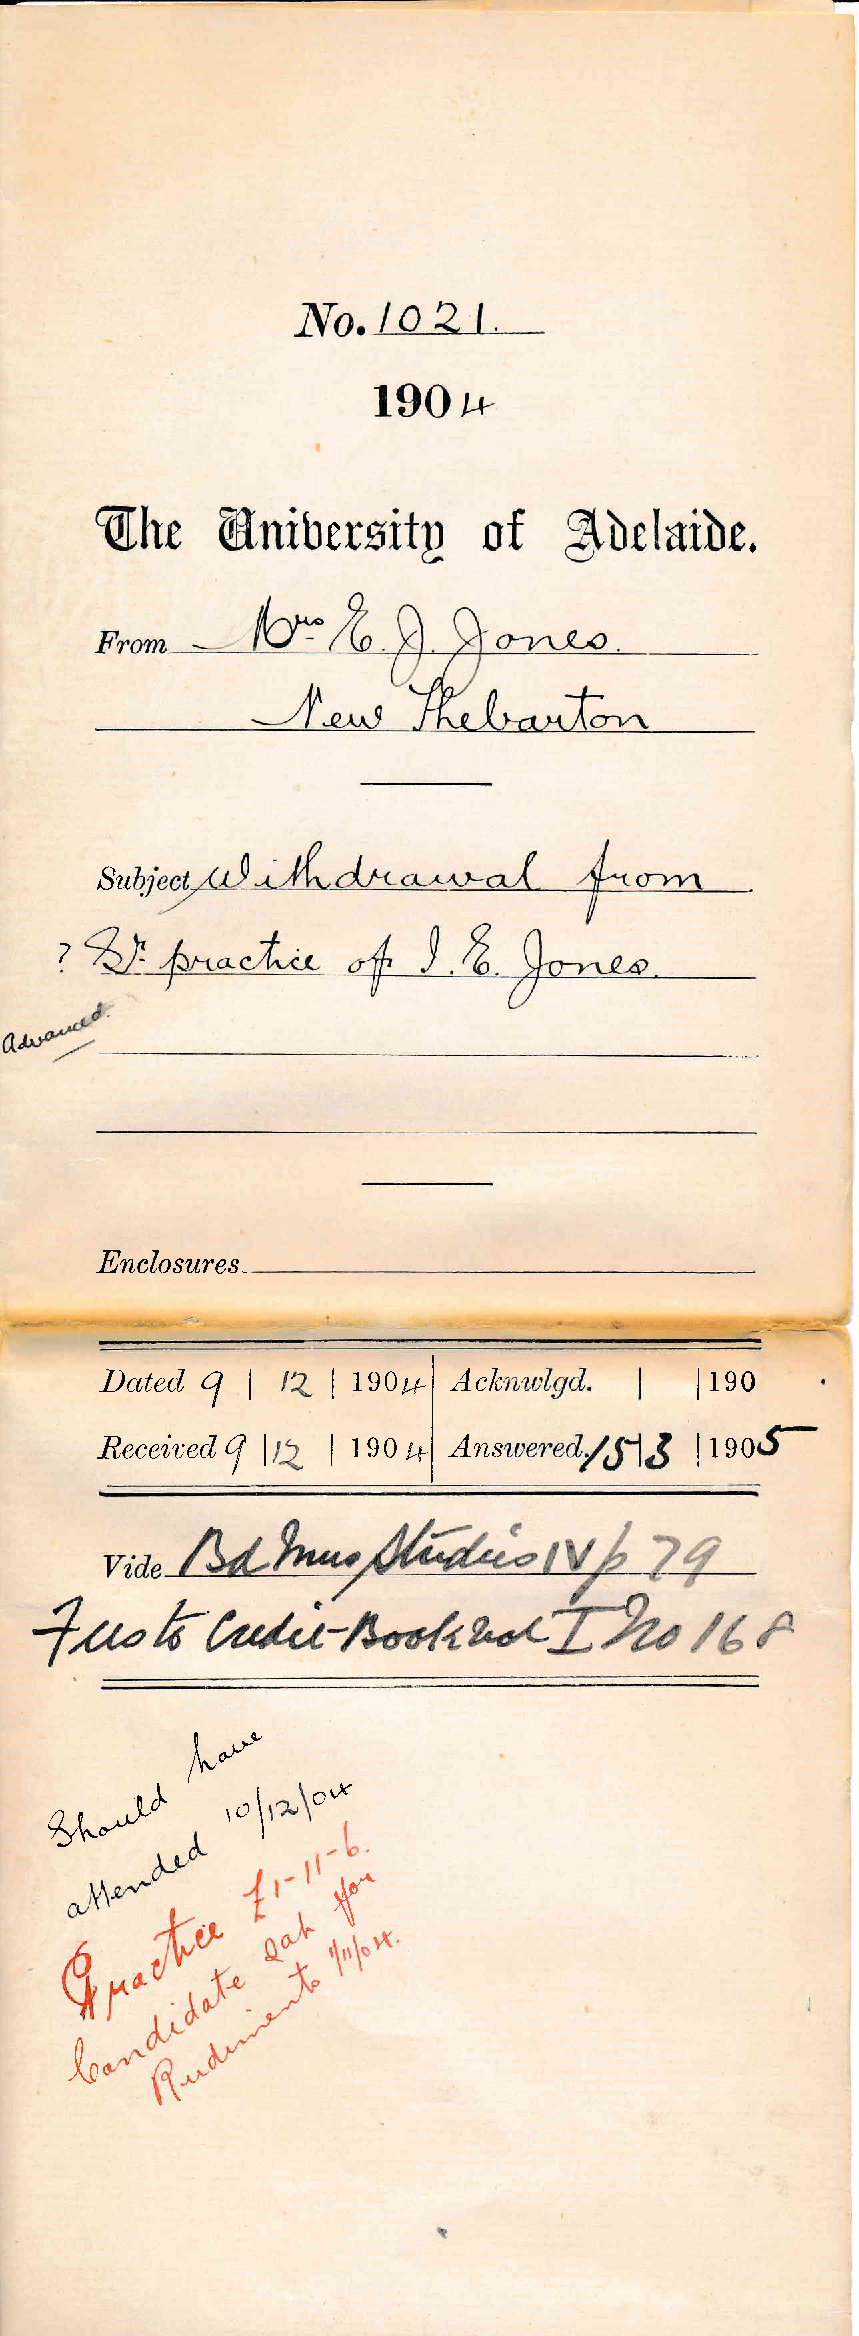 No. 1021.
1904
The University of Adelaide.
From Mrs E. J. Jones.
New Thebarton
Subject Withdrawal from
? Sr. practice of I. E. Jones.
Advanced.
Enclosures
Dated 9 | 12 | 1904 Acknwlgd. | | 190
Received 9 | 12 | 1904 Answered. 15 | 3 | 1905
Vide Bd Mus Studies IV p 79
Fees to Credit-Book vol I No 168
Should have
attended 10/12/04
Practice £1-11-6.
Candidate sat for
Rudiments 1/11/04.